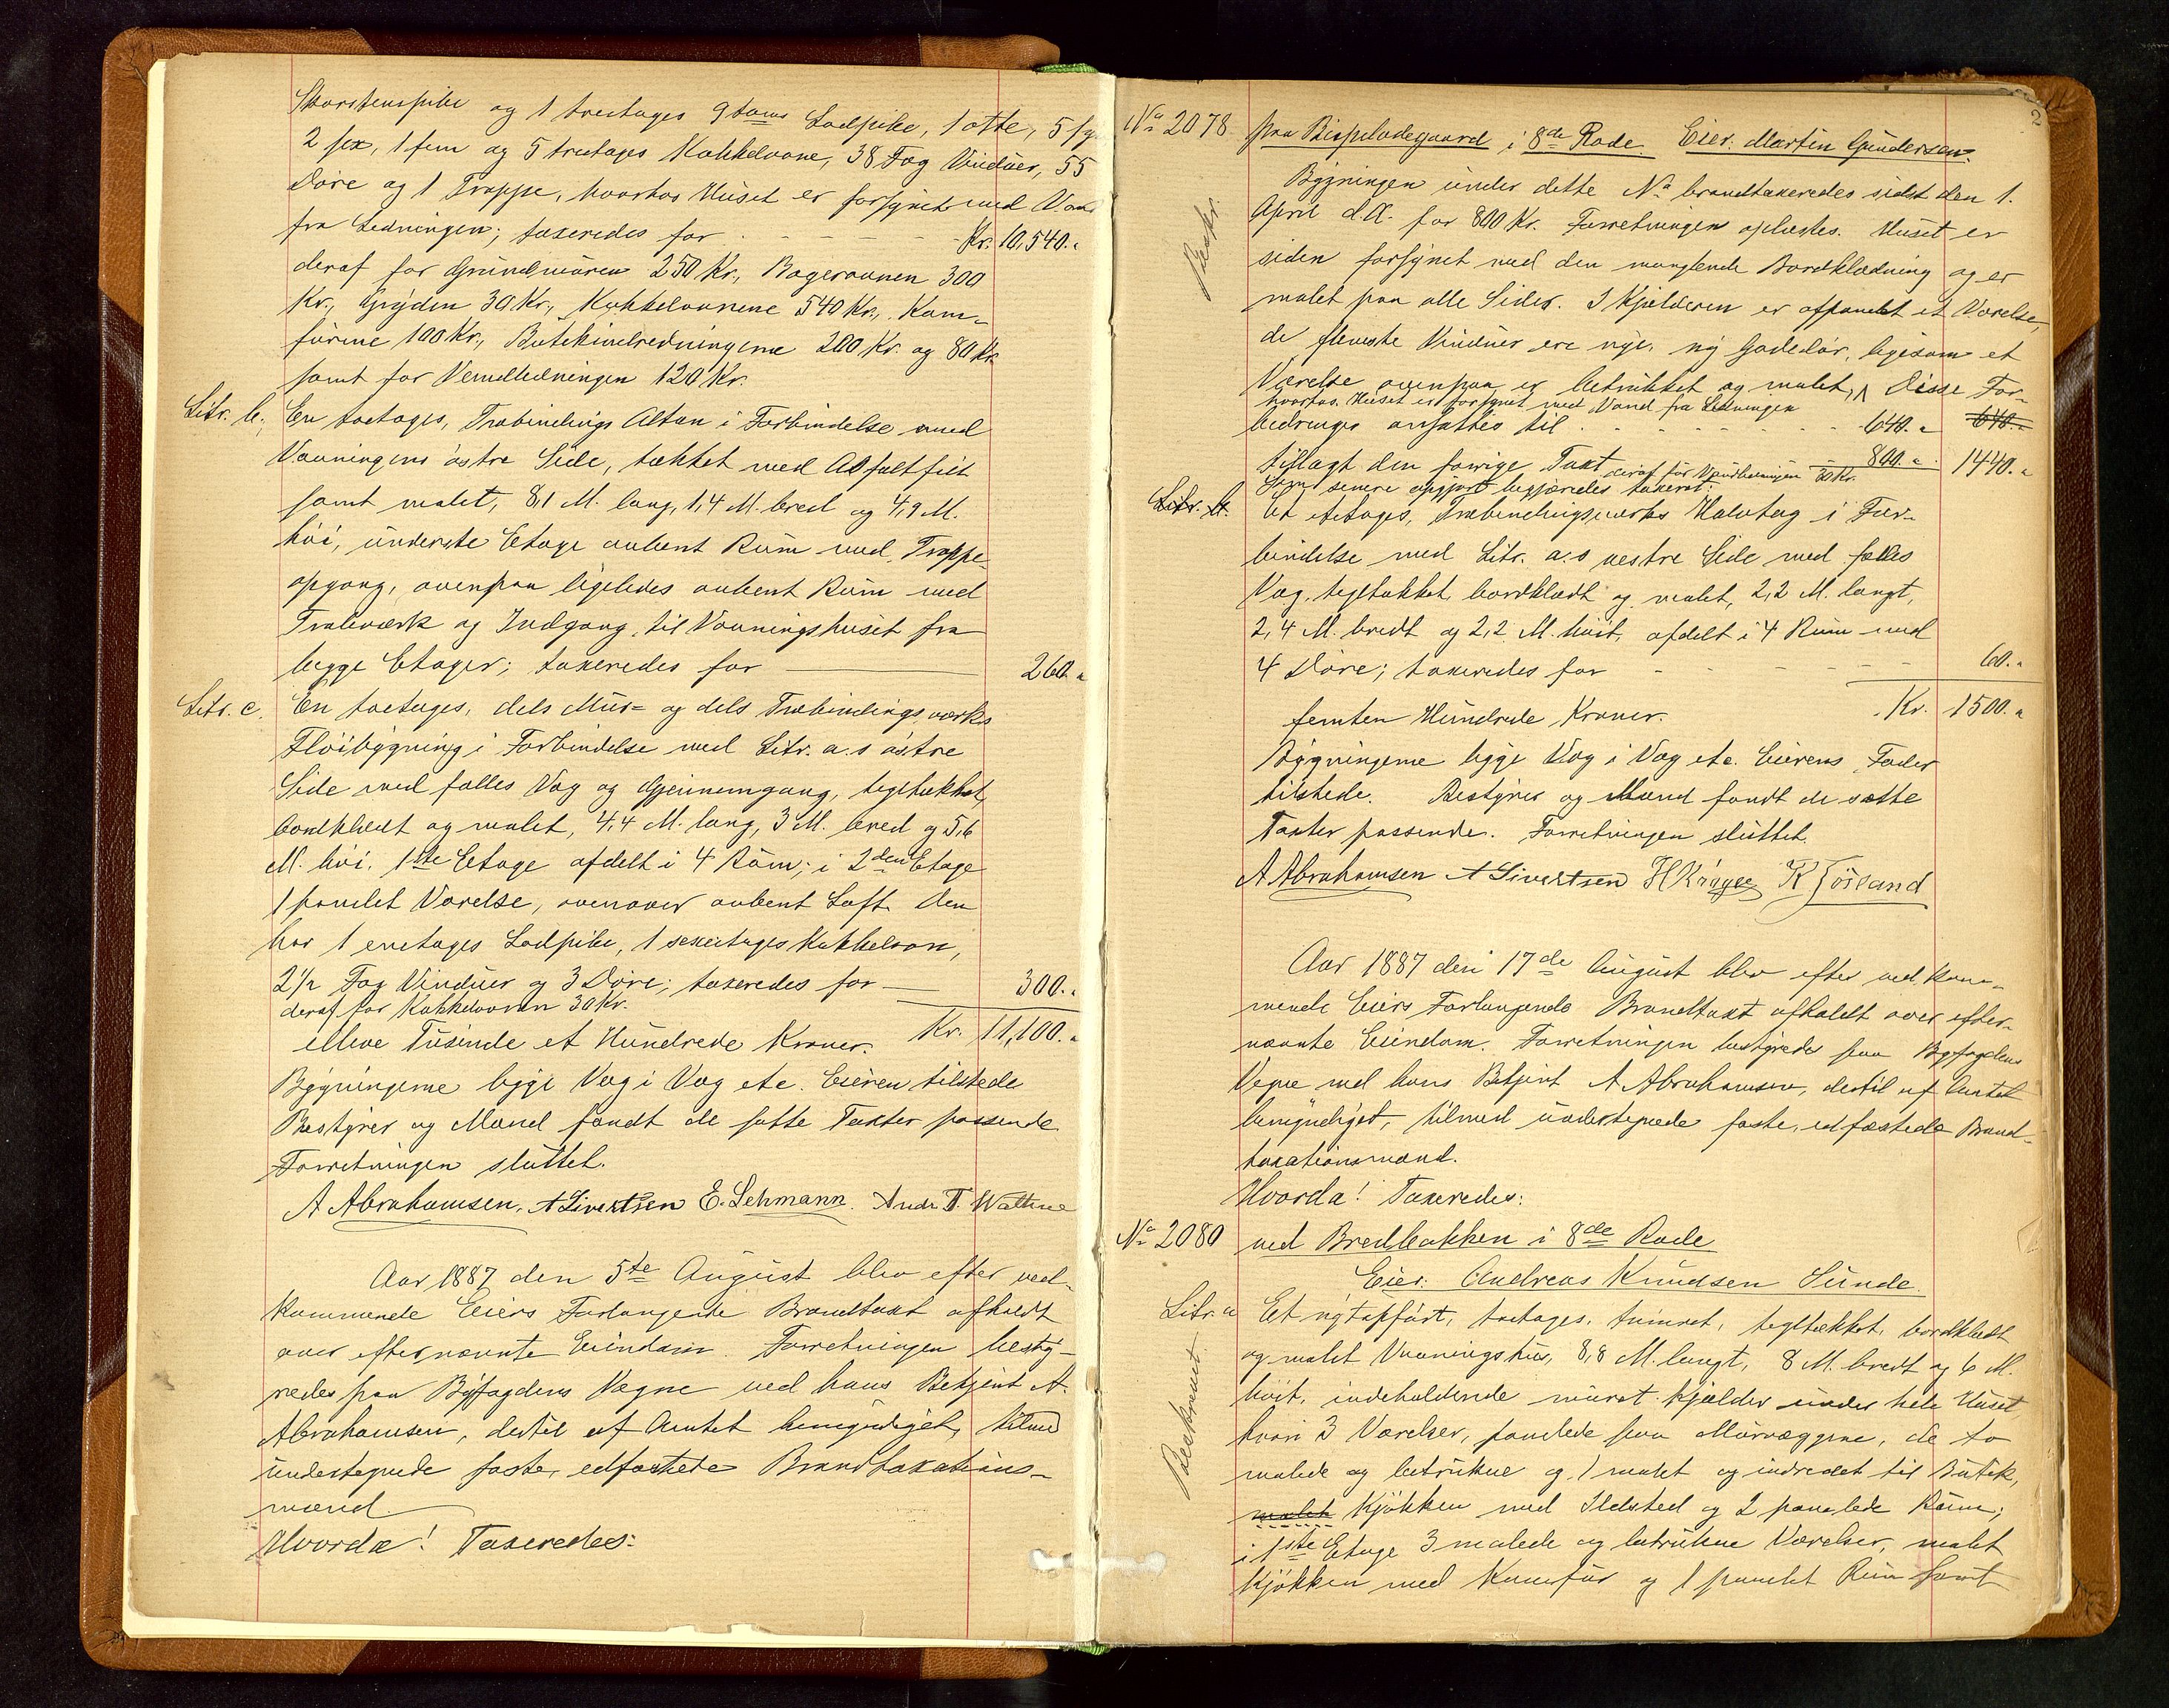 Skorstenspibe og 1 treetages 9 toms Lodpibe, 1 otte, 5 syv
2 sex, 1 fem og 5 treetages Kakkelovne, 38 Fag Vinduer, 55
Döre og 1 Trappe, hvorhos Huset er forsynet med Vand
fra Ledningen; taxeredes for - - - - Kr. 10,540.„
deraf for Grundmuren 250 Kr., Bagerovnen 300
Kr., Gryden 30 Kr., Kakkelovnene 540 Kr., Kom-
fürene 100 Kr., Butikindredningerne 200 Kr. og 80 Kr.
samt for Vandledningen 120 Kr.
Litr. b. En toetages, Træbindings Altan i Forbindelse med
Vaaningens östre Side, tækket med Asfaltfilt
samt malet, 8,1 M. lang, 1,4 M. bred og 4,9 M.
höi, underste Etage aabent Rum med Trappe-
opgang, ovenpaa ligeledes aabent Rum med
Tralværk og Indgang til Vaaningshuset fra
begge Etager; taxeredes for 260.„
Litr. c. En toetages, dels Mur- og dels Træbindingsværks
Flöibygning i Forbindelse med Litr. a.s östre
Side med fælles Væg og Gjennemgang, tegltækket,
bordklædt og malet, 4,4 M. lang, 3 M. bred og 5,6
M. höi. 1ste Etage afdelt i 4 Rum; i 2den Etage
1 panelet Værelse, ovenover aabent Loft. Den
har 1 enetages Lodpibe, 1 sexetages Kakkelovn,
2½ Fag Vinduer og 3 Döre; taxeredes for 300.„
deraf for Kakkelovnen 30 Kr.
elleve Tusinde et Hundrede Kroner. Kr. 11,100.„
Bygningerne ligge Væg i Væg etc. Eieren tilstede
Bestyrer og Mænd fandt de satte Taxter passende
Forretningen sluttet.
A Abrahamsen. A Sivertsen E. Lehmann. Andr. T. Wathne
Aar 1887 den 5te August blev efter ved-
kommende Eiers Forlangende Brandtaxt afholdt
over efternævnte Eiendom. Forretningen besty-
redes paa Byfogdens Vegne ved hans Betjent A.
Abrahamsen, dertil af Amtet bemyndiget, tilmed
undertegnede faste, edfæstede Brandtaxations-
mænd.
Hvorda! Taxeredes:
2
No 2078 paa Bispeladegaard i 8de Rode. Eier: Martin Gundersen.
Beskr.
Bygningen under dette No brandtaxeredes sidst den 1.
April d.A. for 800 Kr. Forretningen oplæstes. Huset er
siden forsynet med den manglende Bordklædning og er
malet paa alle Sider. I Kjælderen er afpanelet et Værelse,
de fleste Vinduer ere nye, ny Gadedör, ligesom et
Værelse ovenpaa er betrukket og malet, Disse For-
hvorhos Huset er forsynet med Vand fra Ledningen
bedringer ansattes til - - - - 640.„ 640.„
tillagt den forrige Taxt 800.„ 1440.„
deraf for Vandledningen 30 Kr.
Som senere opgjort begjæredes taxeret:
Litr. b. Et etetages, Træbindingsværks Halvtag i For-
bindelse med Litr. a.s vestre Side med fælles
Væg, tegltækket, bordklædt og malet, 2,2 M. langt,
2,4 M. bredt og 2,2 M. höit, afdelt i 4 Rum med
4 Döre; taxeredes for - - - - 60.„
femten Hundrede Kroner. Kr. 1500.„
Bygningerne ligge Væg i Væg etc. Eierens Fader
tilstede. Bestyrer og Mænd fandt de satte
Taxter passende. Forretningen sluttet.
A Abrahamsen A Sivertsen H Krage K Josland
Aar 1887 den 17de August blev efter vedkom-
mende Eiers Forlangende Brandtaxt afholdt over efter-
nævnte Eiendom. Forretningen bestyredes paa Byfogdens
Vegne ved hans Betjent A Abrahamsen, dertil af Amtet
bemyndiget, tilmed undertegnede faste, edfæstede Brand-
taxationsmænd.
Hvorda! Taxeredes:
No 2080 ved Bredbakken i 8de Rode
Eier: Andreas Knudsen Sunde.
Beskrevet
Litr. a Et nytopfört, toetages, tömret, tegltækket, bordklædt
og malet Vaaningshus, 8,8 M. langt, 8 M. bredt og 6 M.
höit, indeholdende muret Kjælder under hele Huset
hvori 3 Værelser, panelede paa Murvæggene, de to
malede og betrukne og 1 malet og indredet til Butik,
malet Kjökken med Ildsted og 2 panelede Rum;
i 1ste Etage 3 malede og betrukne Værelser, malet
Kjökken med Komfür og 1 panelet Rum samt